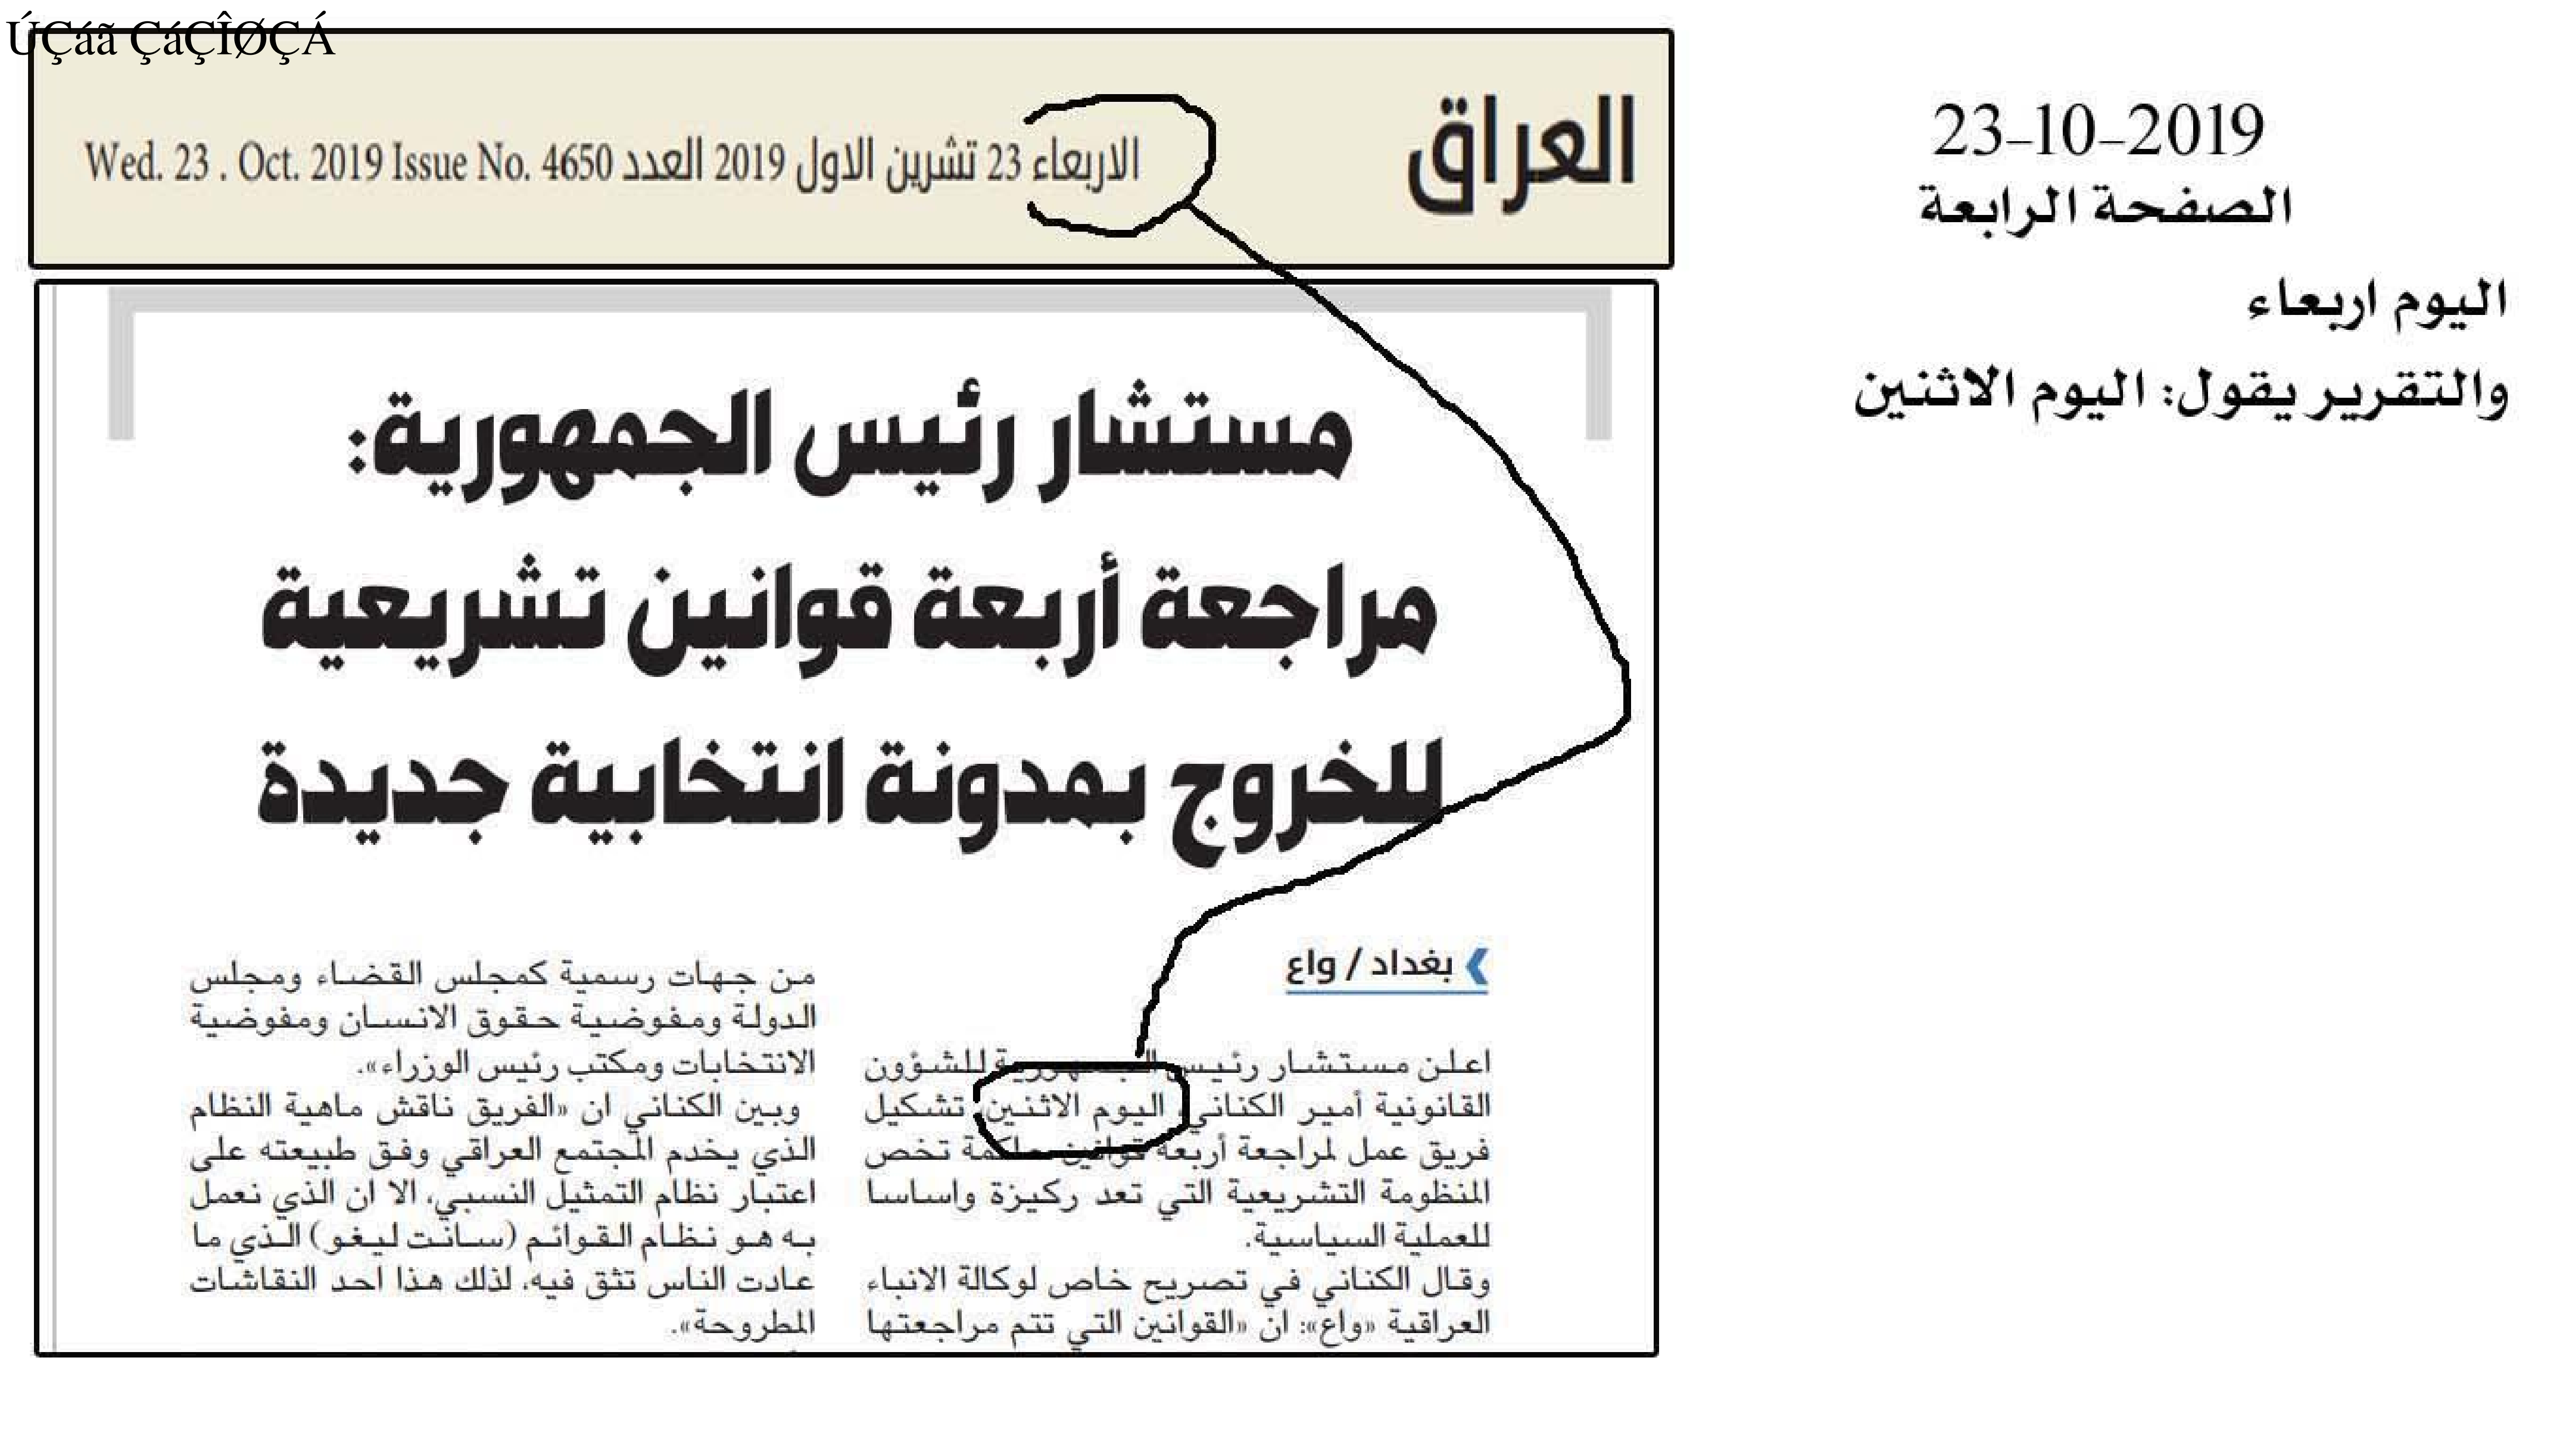 ÚÇáã ÇáÇÎØÇÁ
العراق
الاربعاء 23 تشرين الاول 2019 العدد Wed. 23 . Oct. 2019 Issue No. 4650
23-10-2019
الصفحة الرابعة
اليوم اربعاء
والتقرير يقول: اليوم الاثنين
مستشار رئيس الجمهورية:
مراجعة أربعة قوانين تشريعية
للخروج بمدونة انتخابية جديدة
بغداد / واع
اعلن مستشار رئيس الجمهورية للشؤون
القانونية أمير الكناني، اليوم الاثنين، تشكيل
فريق عمل لمراجعة أربعة قوانين حاكمة تخص
المنظومة التشريعية التي تعد ركيزة واساسا
للعملية السياسية.
وقال الكناني في تصريح خاص لوكالة الانباء
العراقية «واع»: ان «القوانين التي تتم مراجعتها
من جهات رسمية كمجلس القضاء ومجلس
الدولة ومفوضية حقوق الانسان ومفوضية
الانتخابات ومكتب رئيس الوزراء».
وبين الكناني ان «الفريق ناقش ماهية النظام
الذي يخدم المجتمع العراقي وفق طبيعته على
اعتبار نظام التمثيل النسبي، الا ان الذي نعمل
به هو نظام القوائم (سانت ليغو) الذي ما
عادت الناس تثق فيه، لذلك هذا احد النقاشات
المطروحة».